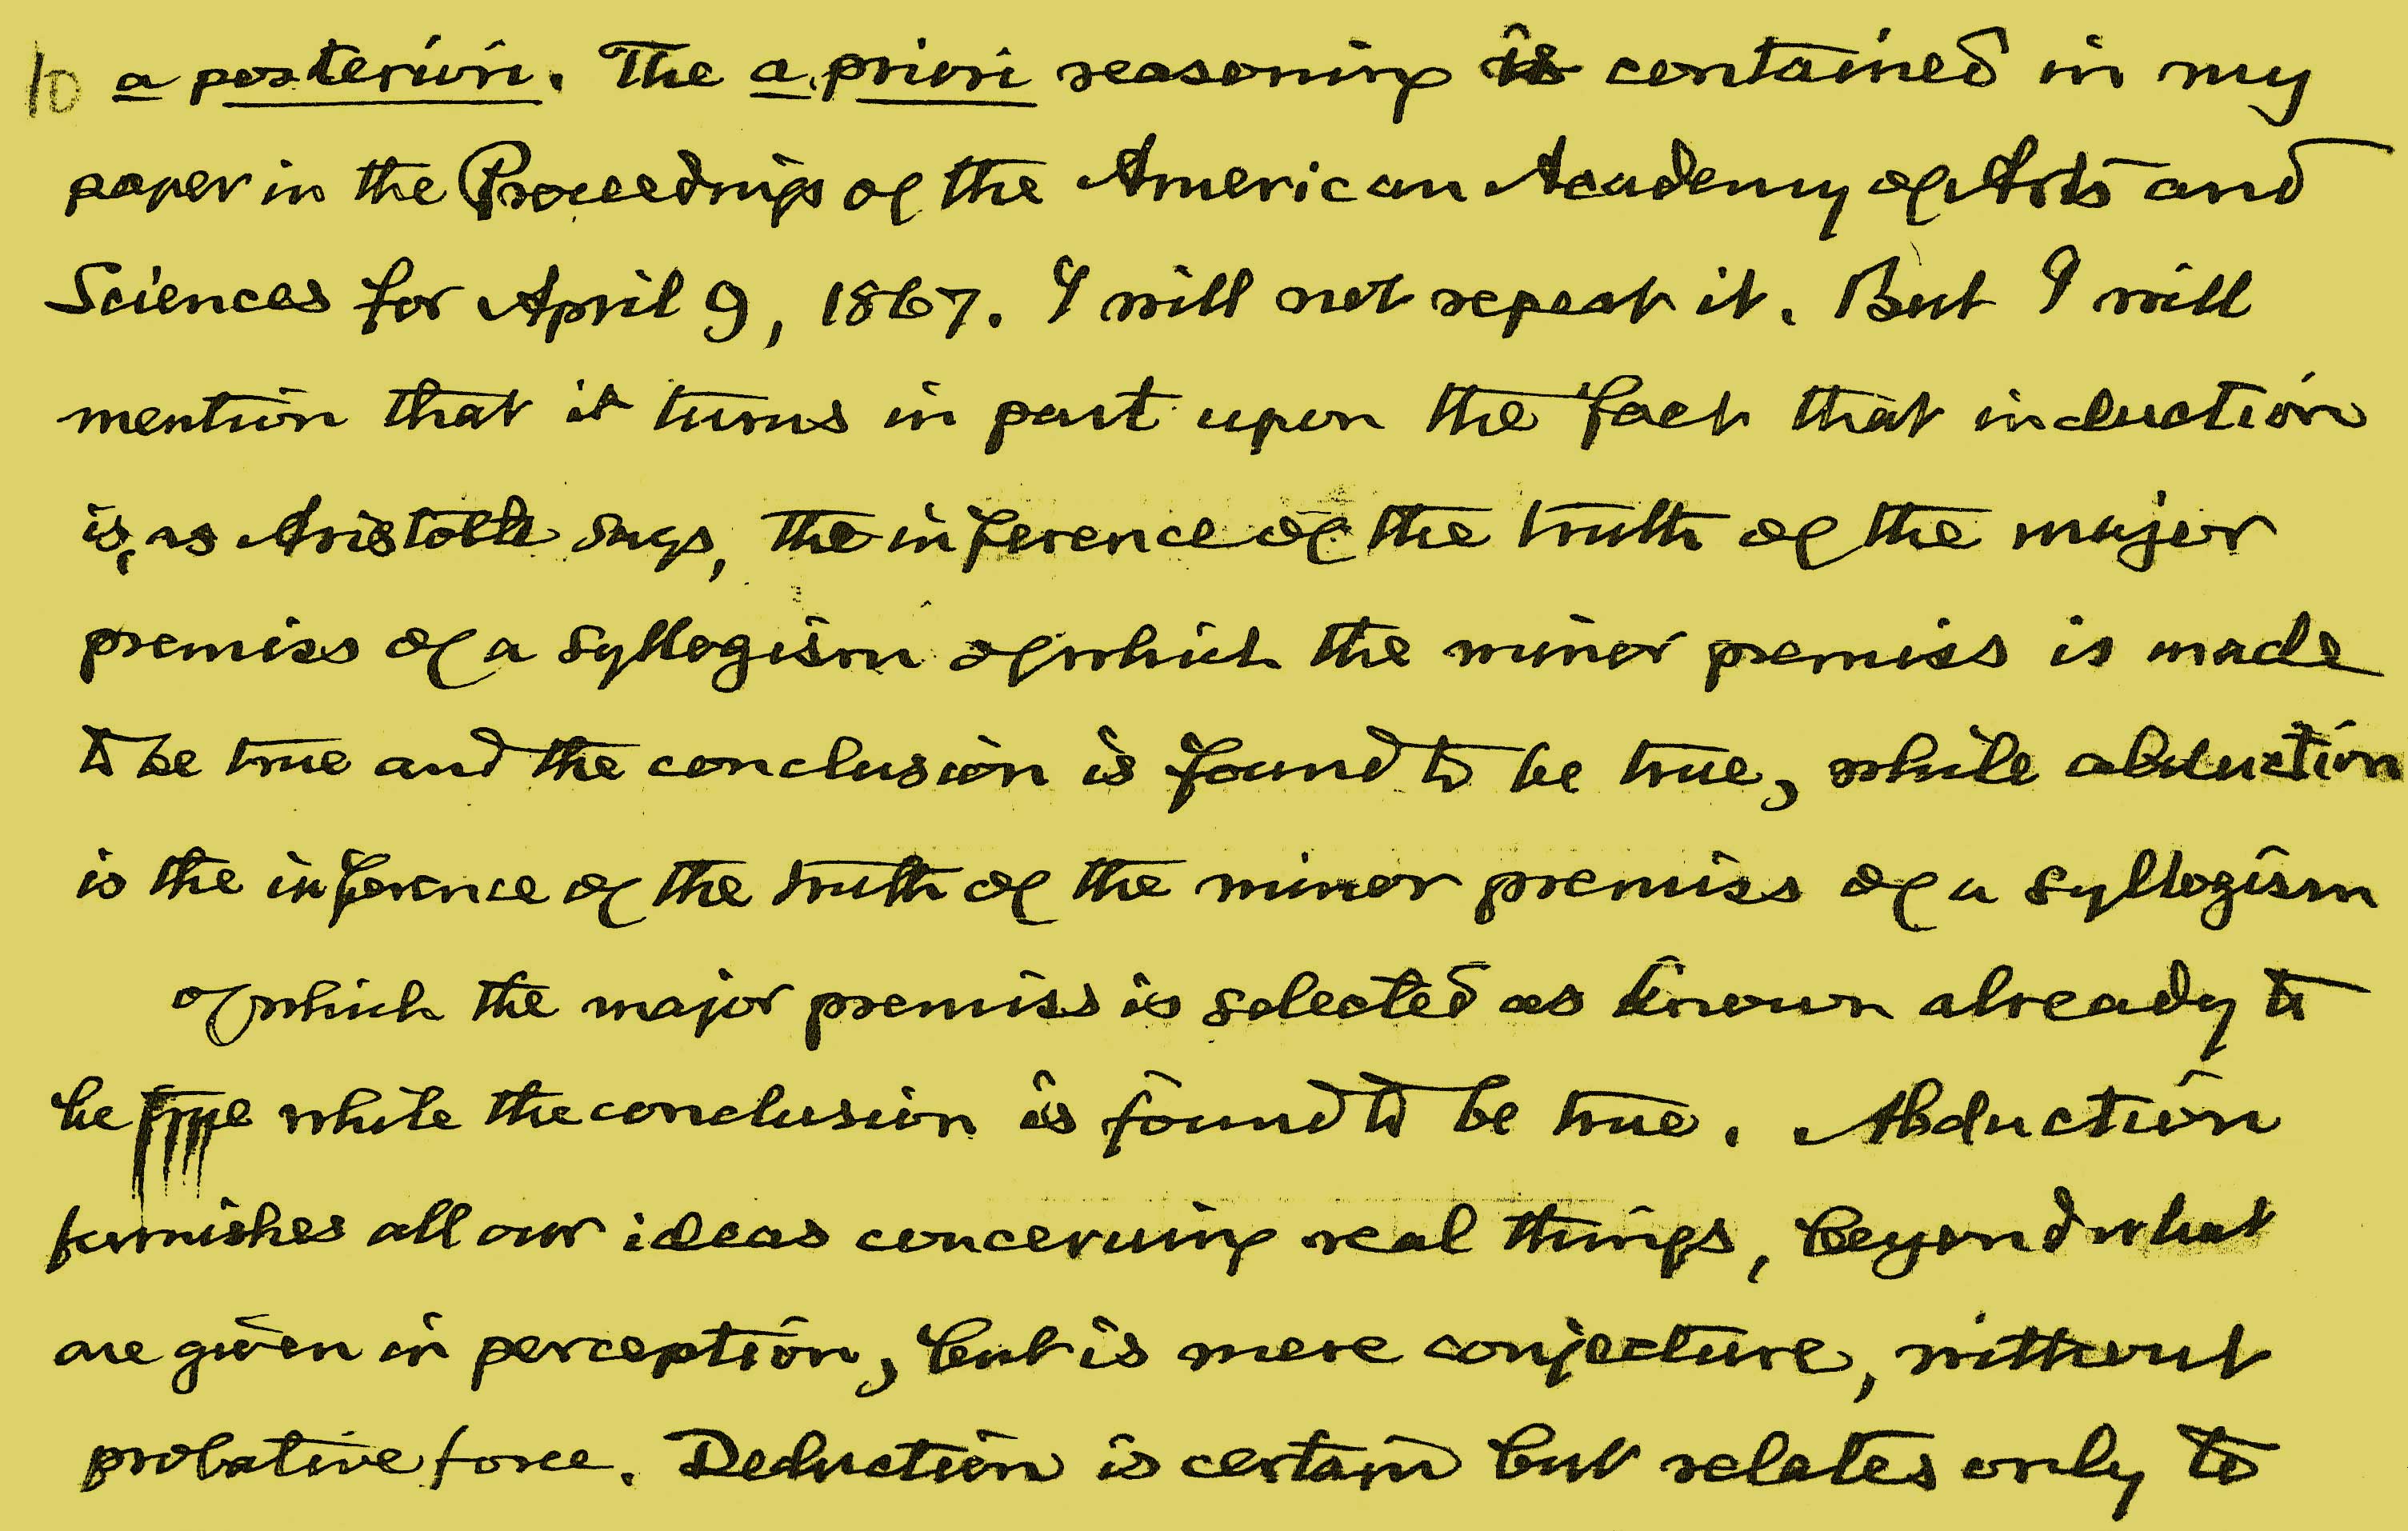 10 a posteriori. The a priori reasoning is contained in my
paper in the Proceedings of the American Academy of Arts and
Sciences for April 9, 1867. I will not repeat it. But I will
mention that it turns in part upon the fact that induction
is, as Aristotle says, the inference of the truth of the major
premiss of a syllogism of which the minor premiss is made
to be true and the conclusion is found to be true, while abduction
is the inference of the truth of the minor premiss of a syllogism
of which the major premiss is selected as known already to
be true while the conclusion is found to be true. Abduction
furnishes all our ideas concerning real things, beyond what
are given in perception, but is mere conjecture, without
probative force. Deduction is certain but relates only to